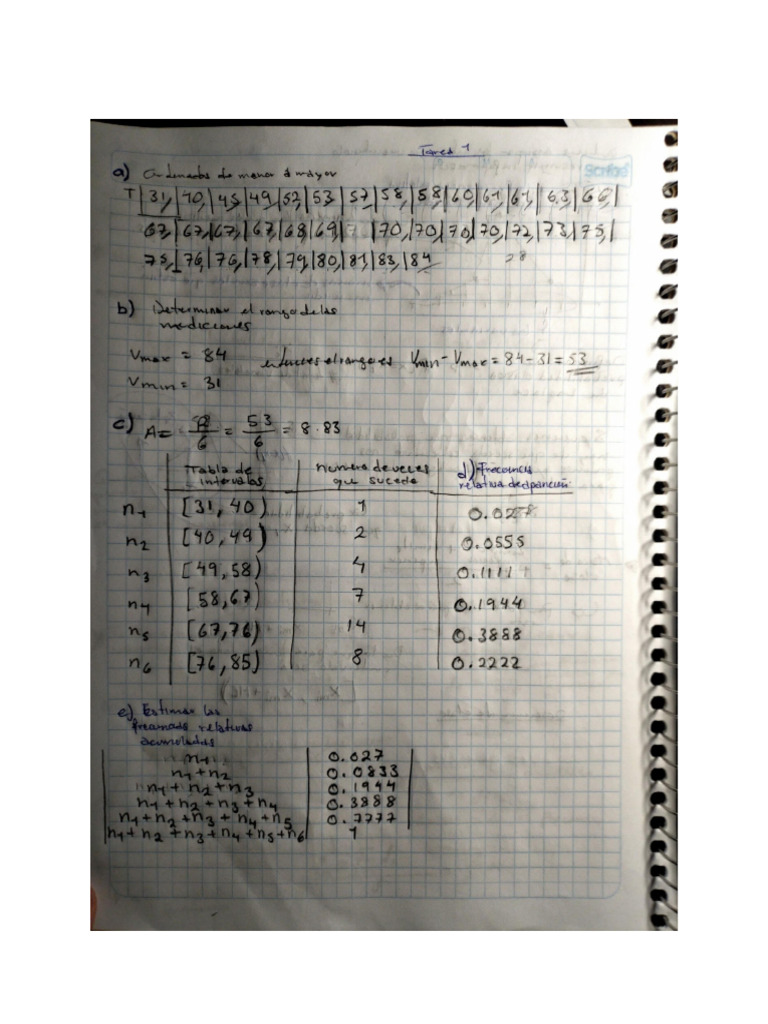 Tarea 1
Scribe
a) Ordenados de menor a mayor
T |31,|40,|45,|49,|52,|53|57,|58,|58|60,|61,|61,|63,|66,|
67,|67,|67,|67,|68,|69,| |70,|70,|70,|70,|72,|73,|75,|
75,|76,|76,|78,|79,|80,|81,|83,|84
28
b) Determinar el rango de las
mediciones
Vmax = 84 entonces el rango es Vmin - Vmax = 84 - 31 = 53
Vmin = 31
c) A = R/6 = 53/6 = 8.83
Tabla de intervalos | Numero de veces que sucede | d) Frecuencia relativa de aparición
n1 [31, 40) 1 0.027
n2 [40, 49) 2 0.0555
n3 [49, 58) 4 0.1111
n4 [58, 67) 7 0.1944
n5 [67, 76) 14 0.3888
n6 [76, 85) 8 0.2222
e) Estimar las
frecuencias relativas
acumuladas
n1 0.027
n1 + n2 0.0833
n1 + n2 + n3 0.1944
n1 + n2 + n3 + n4 0.3888
n1 + n2 + n3 + n4 + n5 0.7777
n1 + n2 + n3 + n4 + n5 + n6 1